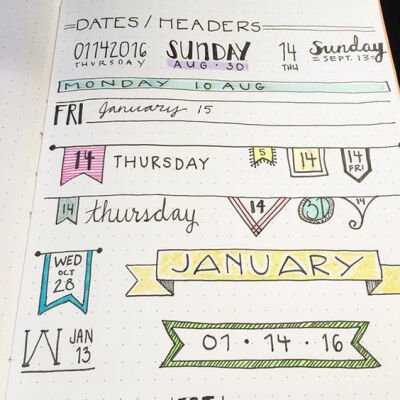 DATES / HEADERS
01142016
THURSDAY
SUNDAY
AUG · 30
14
THU
Sunday
SEPT. 13
MONDAY 10 AUG
FRI January 15
14 THURSDAY 5 14 14
FRI
14 thursday 14 31 14
WED
OCT
28
JANUARY
W JAN
13
01 · 14 · 16